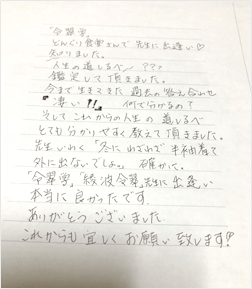 「令翠学」
どんぐり食堂さんで 先生に出逢い♡
知りました。
人生の道しるべ～ ???
鑑定して頂きました。
今まで生きてきた 過去の答え合わせ
『凄い!!』 何で分かるの?
そして これからの人生の 道しるべ
とても 分かりやすく 教えて 頂きました。
先生いわく 「冬にわざわざ 半袖着て
外に出ないでしょ。」 確かに。
「令翠学」「綾波令翠」先生に 出逢い
本当に 良かったです。
ありがとう ございました。
これからも 宜しく お願い致します!